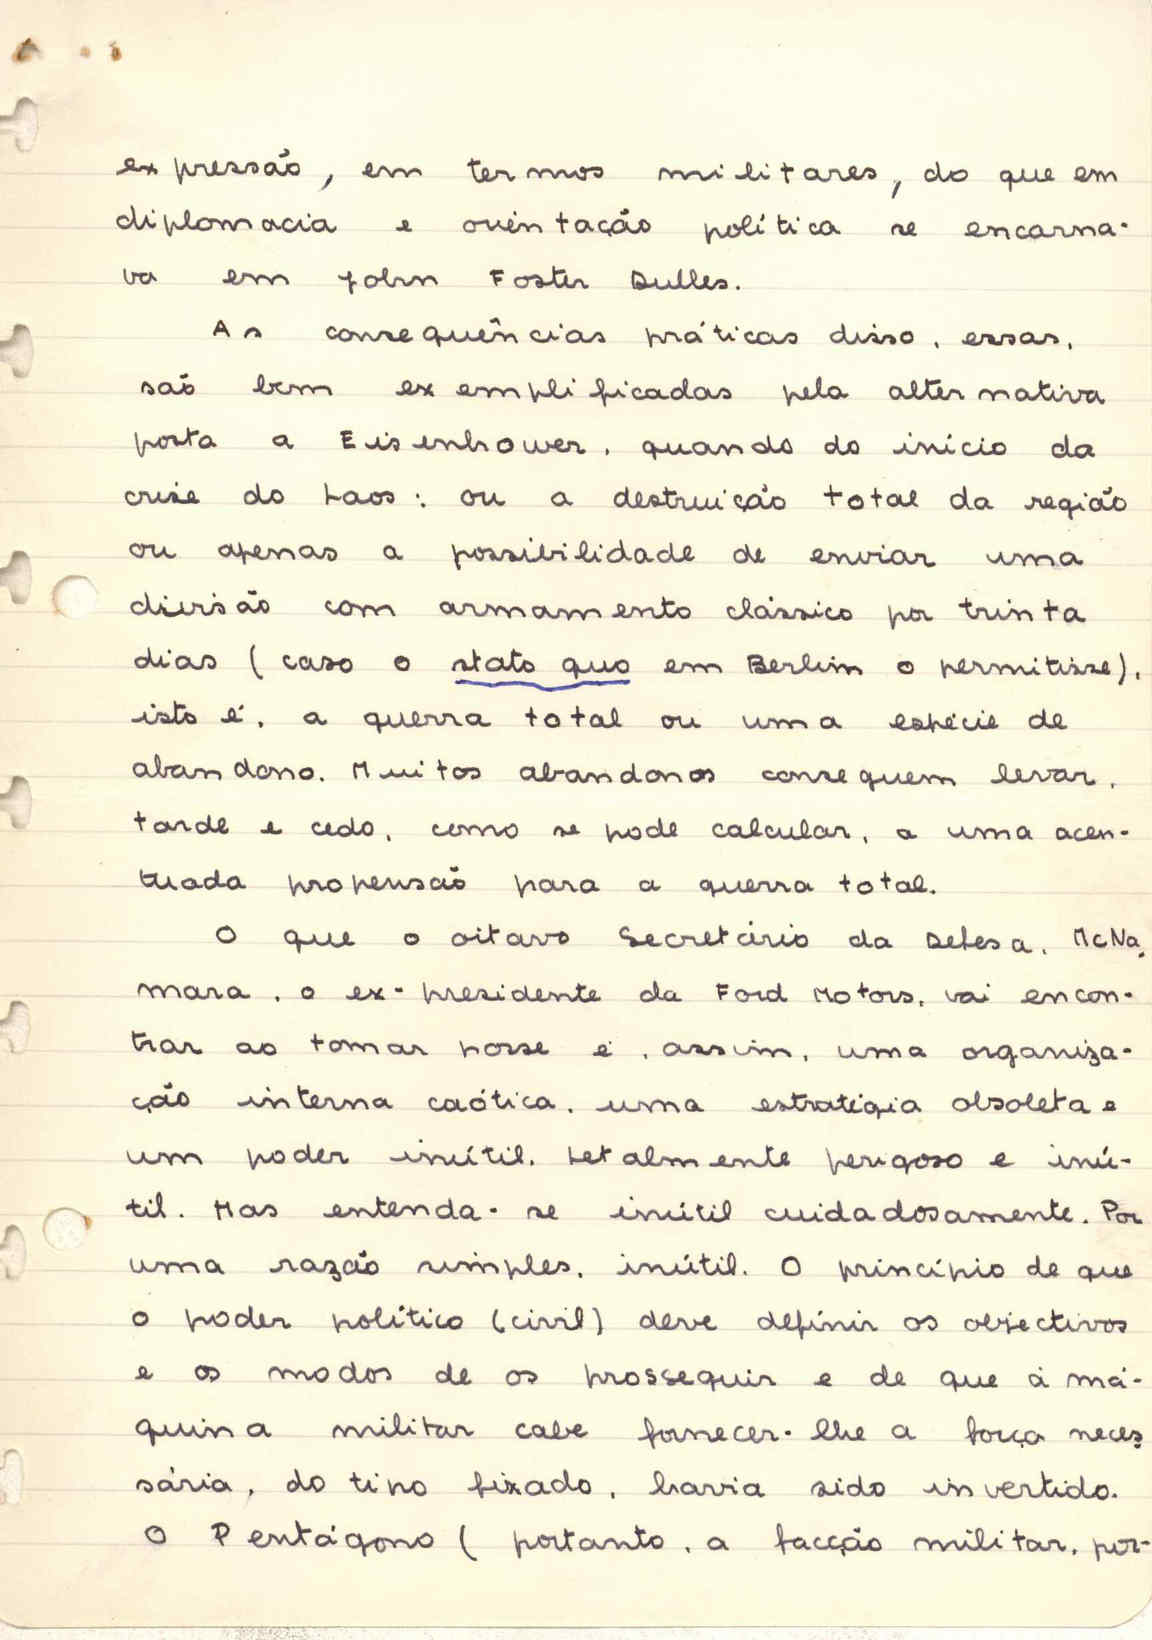 expressão, em termos militares, do que em
diplomacia e orientação política se encarna-
va em John Foster Dulles.
As consequências práticas disso, essas,
são bem exemplificadas pela alternativa
posta a Eisenhower, quando do início da
crise do Laos: ou a destruição total da região
ou apenas a possibilidade de enviar uma
divisão com armamento clássico por trinta
dias (caso o stato quo em Berlim o permitisse),
isto é, a guerra total ou uma espécie de
abandono. Muitos abandonos conseguem levar,
tarde e cedo, como se pode calcular, a uma acen-
tuada propensão para a guerra total.
O que o oitavo Secretário da Defesa, McNa-
mara, o ex-presidente da Ford Motors, vai encon-
trar ao tomar posse é, assim, uma organiza-
ção interna caótica, uma estratégia obsoleta e
um poder inútil. Letalmente perigoso e inú-
til. Mas entenda-se inútil cuidadosamente. Por
uma razão simples, inútil. O princípio de que
o poder político (civil) deve definir os objectivos
e os modos de os prosseguir e de que à má-
quina militar cabe fornecer-lhe a força neces-
sária, do tipo fixado, havia sido invertido.
O Pentágono (portanto, a facção militar, por-